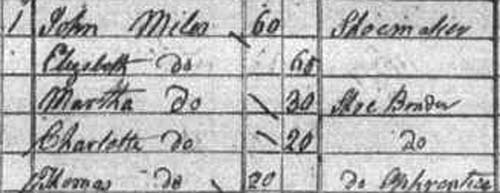 1 John Miles 60 Shoemaker
Elizabeth do 60
Martha do 30 Shoe Binder
Charlotte do 20 do
Thomas do 20 do Apprentice